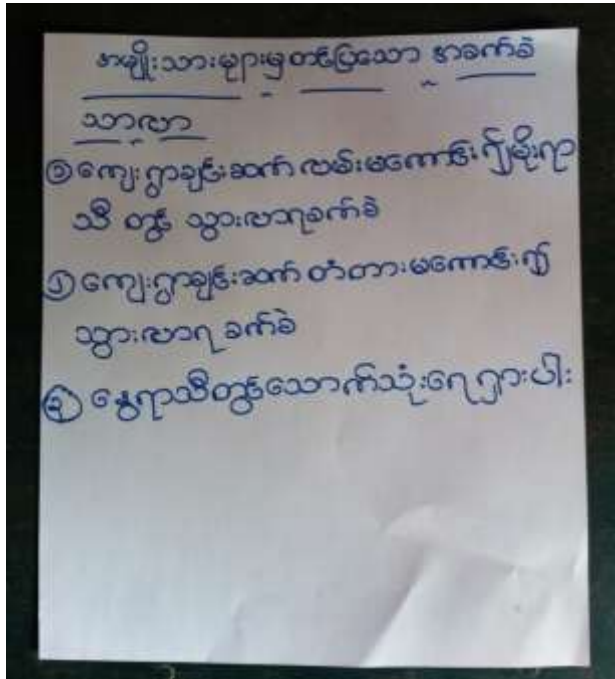 အမျိုးသားများမှတင်ပြသော အခက်ခဲ
သာလာ
၁ ကျေးရွာချင်းဆက် လမ်းမကောင်း၍မိုးရာ
သီ တွင် သွားလာရခက်ခဲ
၂ ကျေးရွာချင်းဆက် တံတားမကောင်း၍
သွားလာရ ခက်ခဲ
၃ နွေရာသီတွင်သောက်သုံးရေရှားပါး